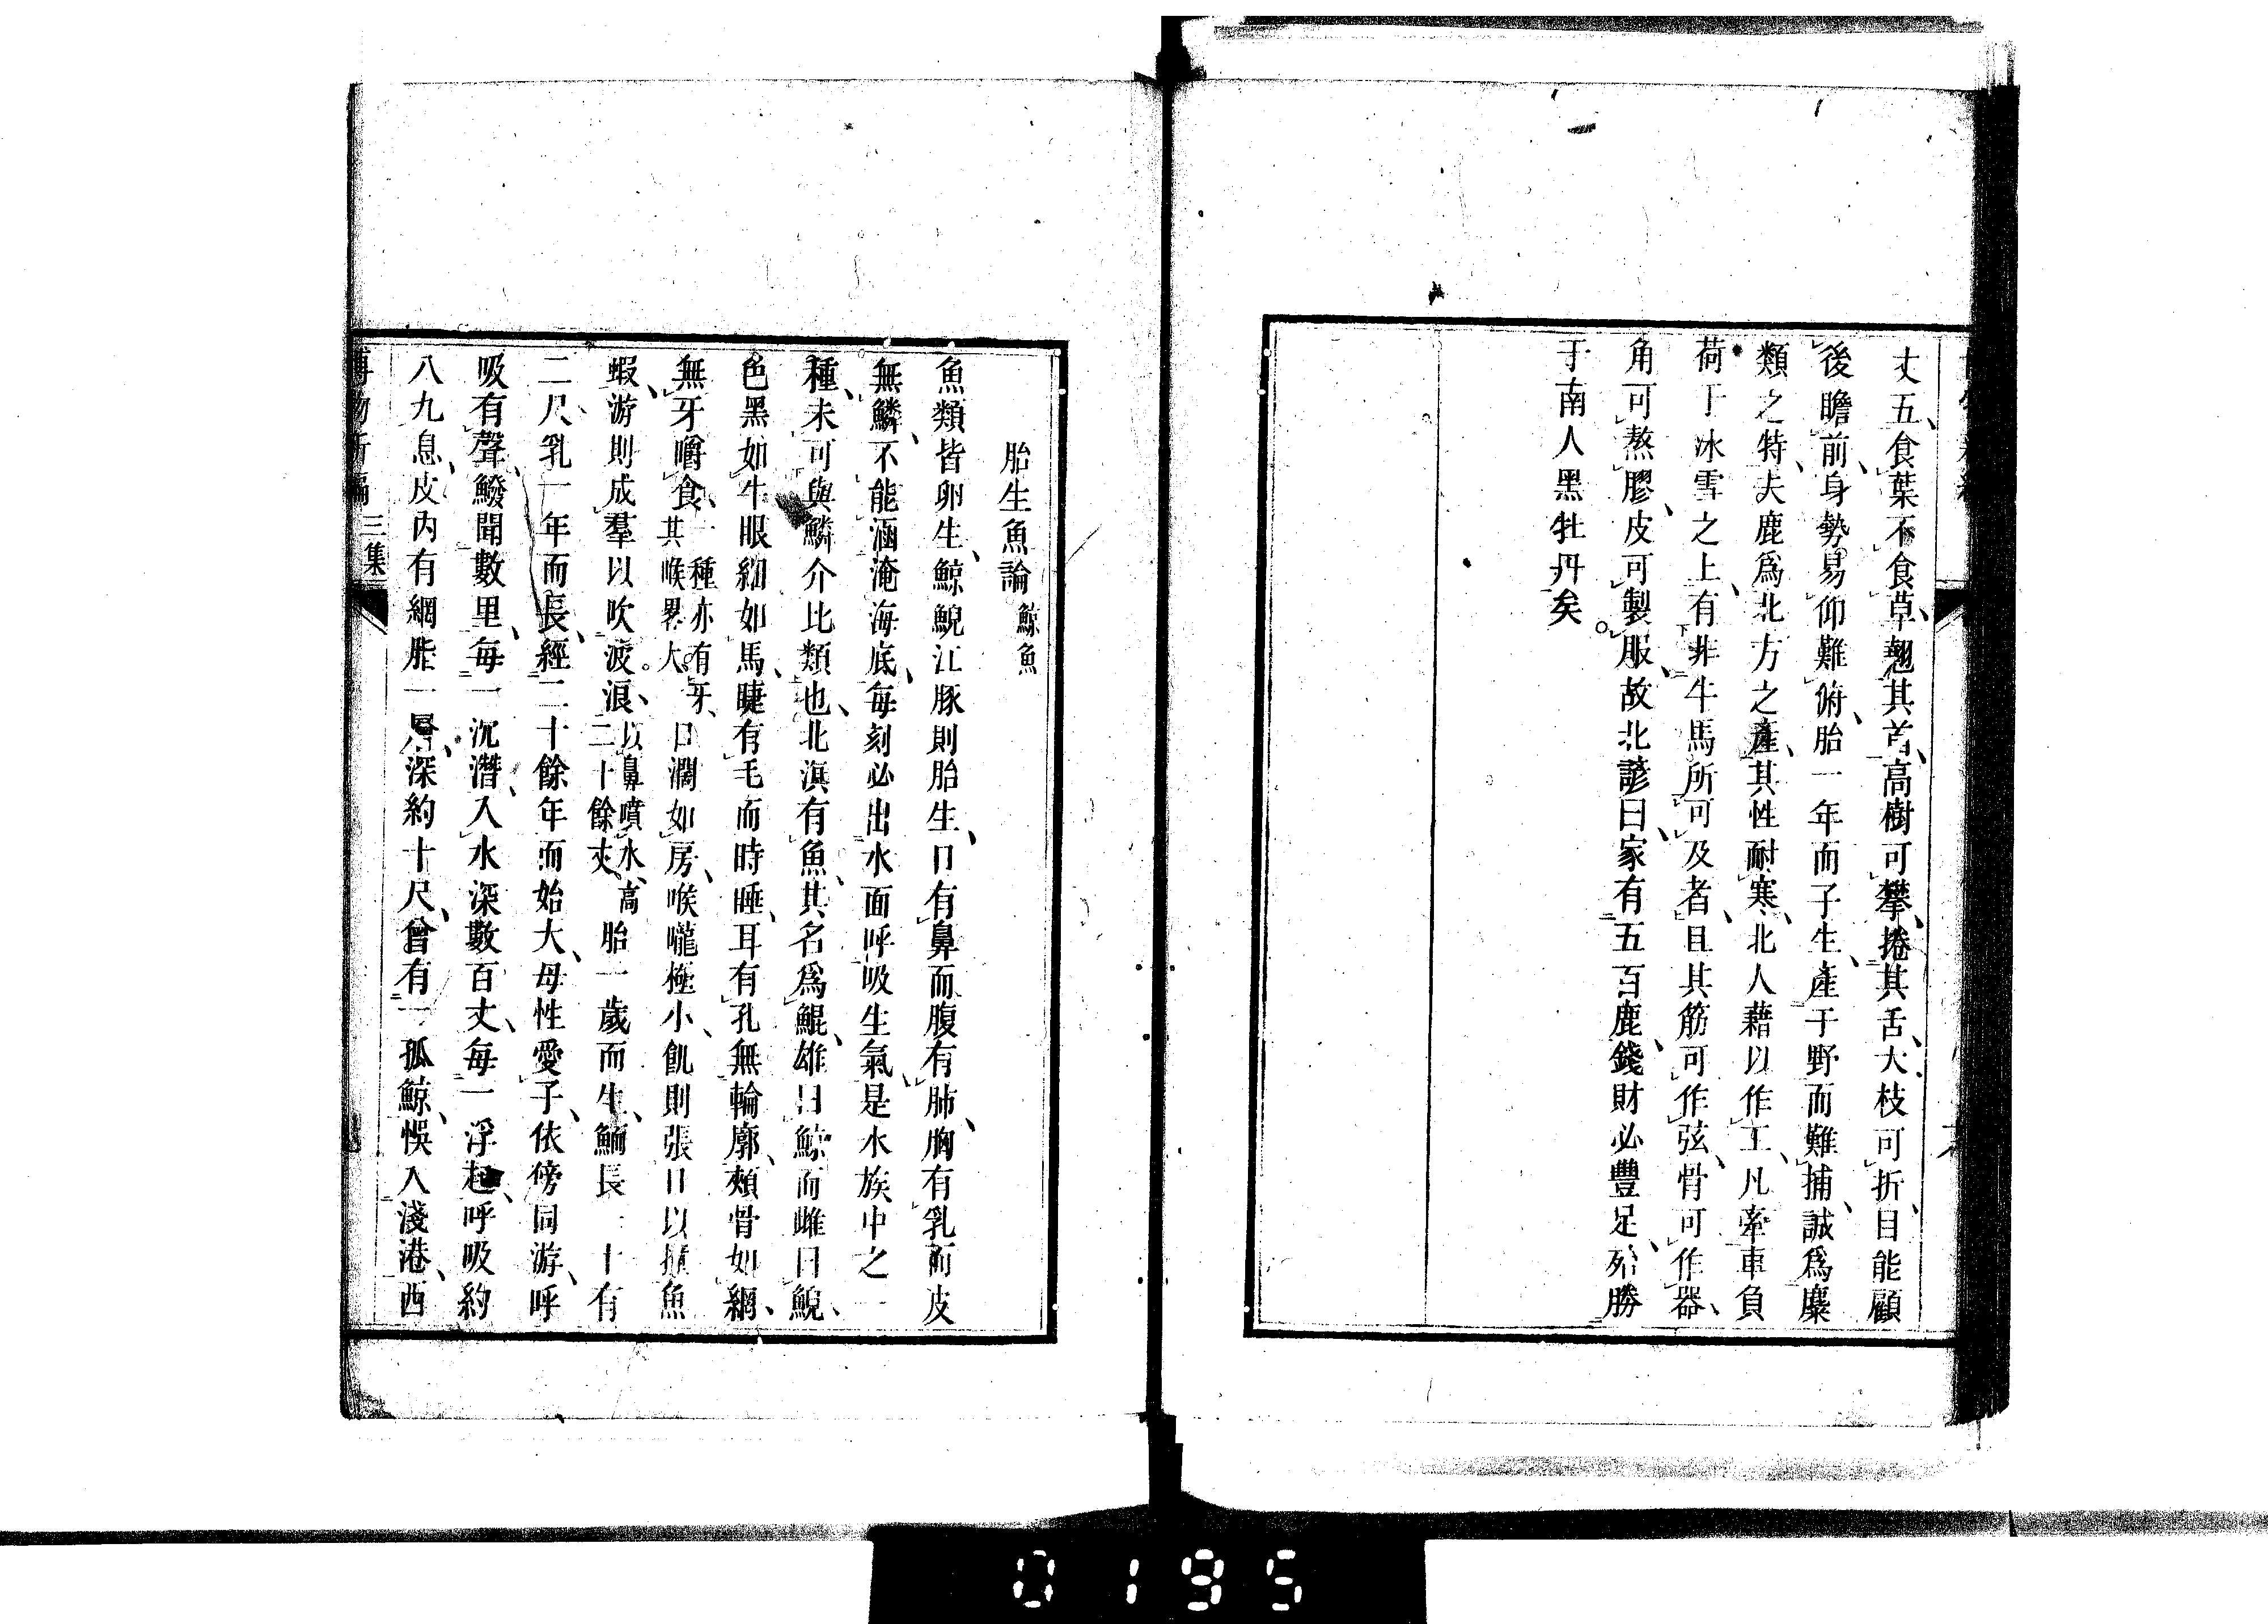 丈五、食葉不食草、翹其首、高樹可攀、捲其舌、大枝可折、目能顧
後瞻前、身勢易仰難俯、胎一年而子生、產于野而難捕、誠爲麋
類之特、夫鹿爲北方之產、其性耐寒、北人藉以作工、凡牽車負
荷于冰雪之上、有非牛馬所可及者、且其筋可作弦、骨可作器、
角可熬膠、皮可製服、故北諺曰、家有五百鹿、錢財必豐足、殆勝
于南人黑牡丹矣
胎生魚論 鯨魚
魚類皆卵生、鯨鯢江豚則胎生、口有鼻而腹有肺、胸有乳而皮
無鱗、不能涵淹海底、每刻必出水面呼吸生氣、是水族中之一
種、未可與鱗介比類也、北溟有魚、其名爲鯤、雄曰鯨而雌曰鯢、
色黑如牛、眼細如馬、睫有毛而時睡、耳有孔無輪廓、頰骨如網、
無牙嚼食、一種亦有牙、其喉畧大。口濶如房、喉嚨極小、飢則張口以
魚
蝦、游則成羣以吹波浪、以鼻噴水、高二十餘丈、胎一歲而生、長一十有
二尺、乳一年而長、經二十餘年而始大、母性愛子、依傍同游、呼
吸有聲、聞數里、每一沉潛、入水深數百丈、每一浮起、呼吸約
八九息、皮內有網脂一層、深約十尺、曾有一孤鯨、悞入淺港、西
博物新編 三集
0195